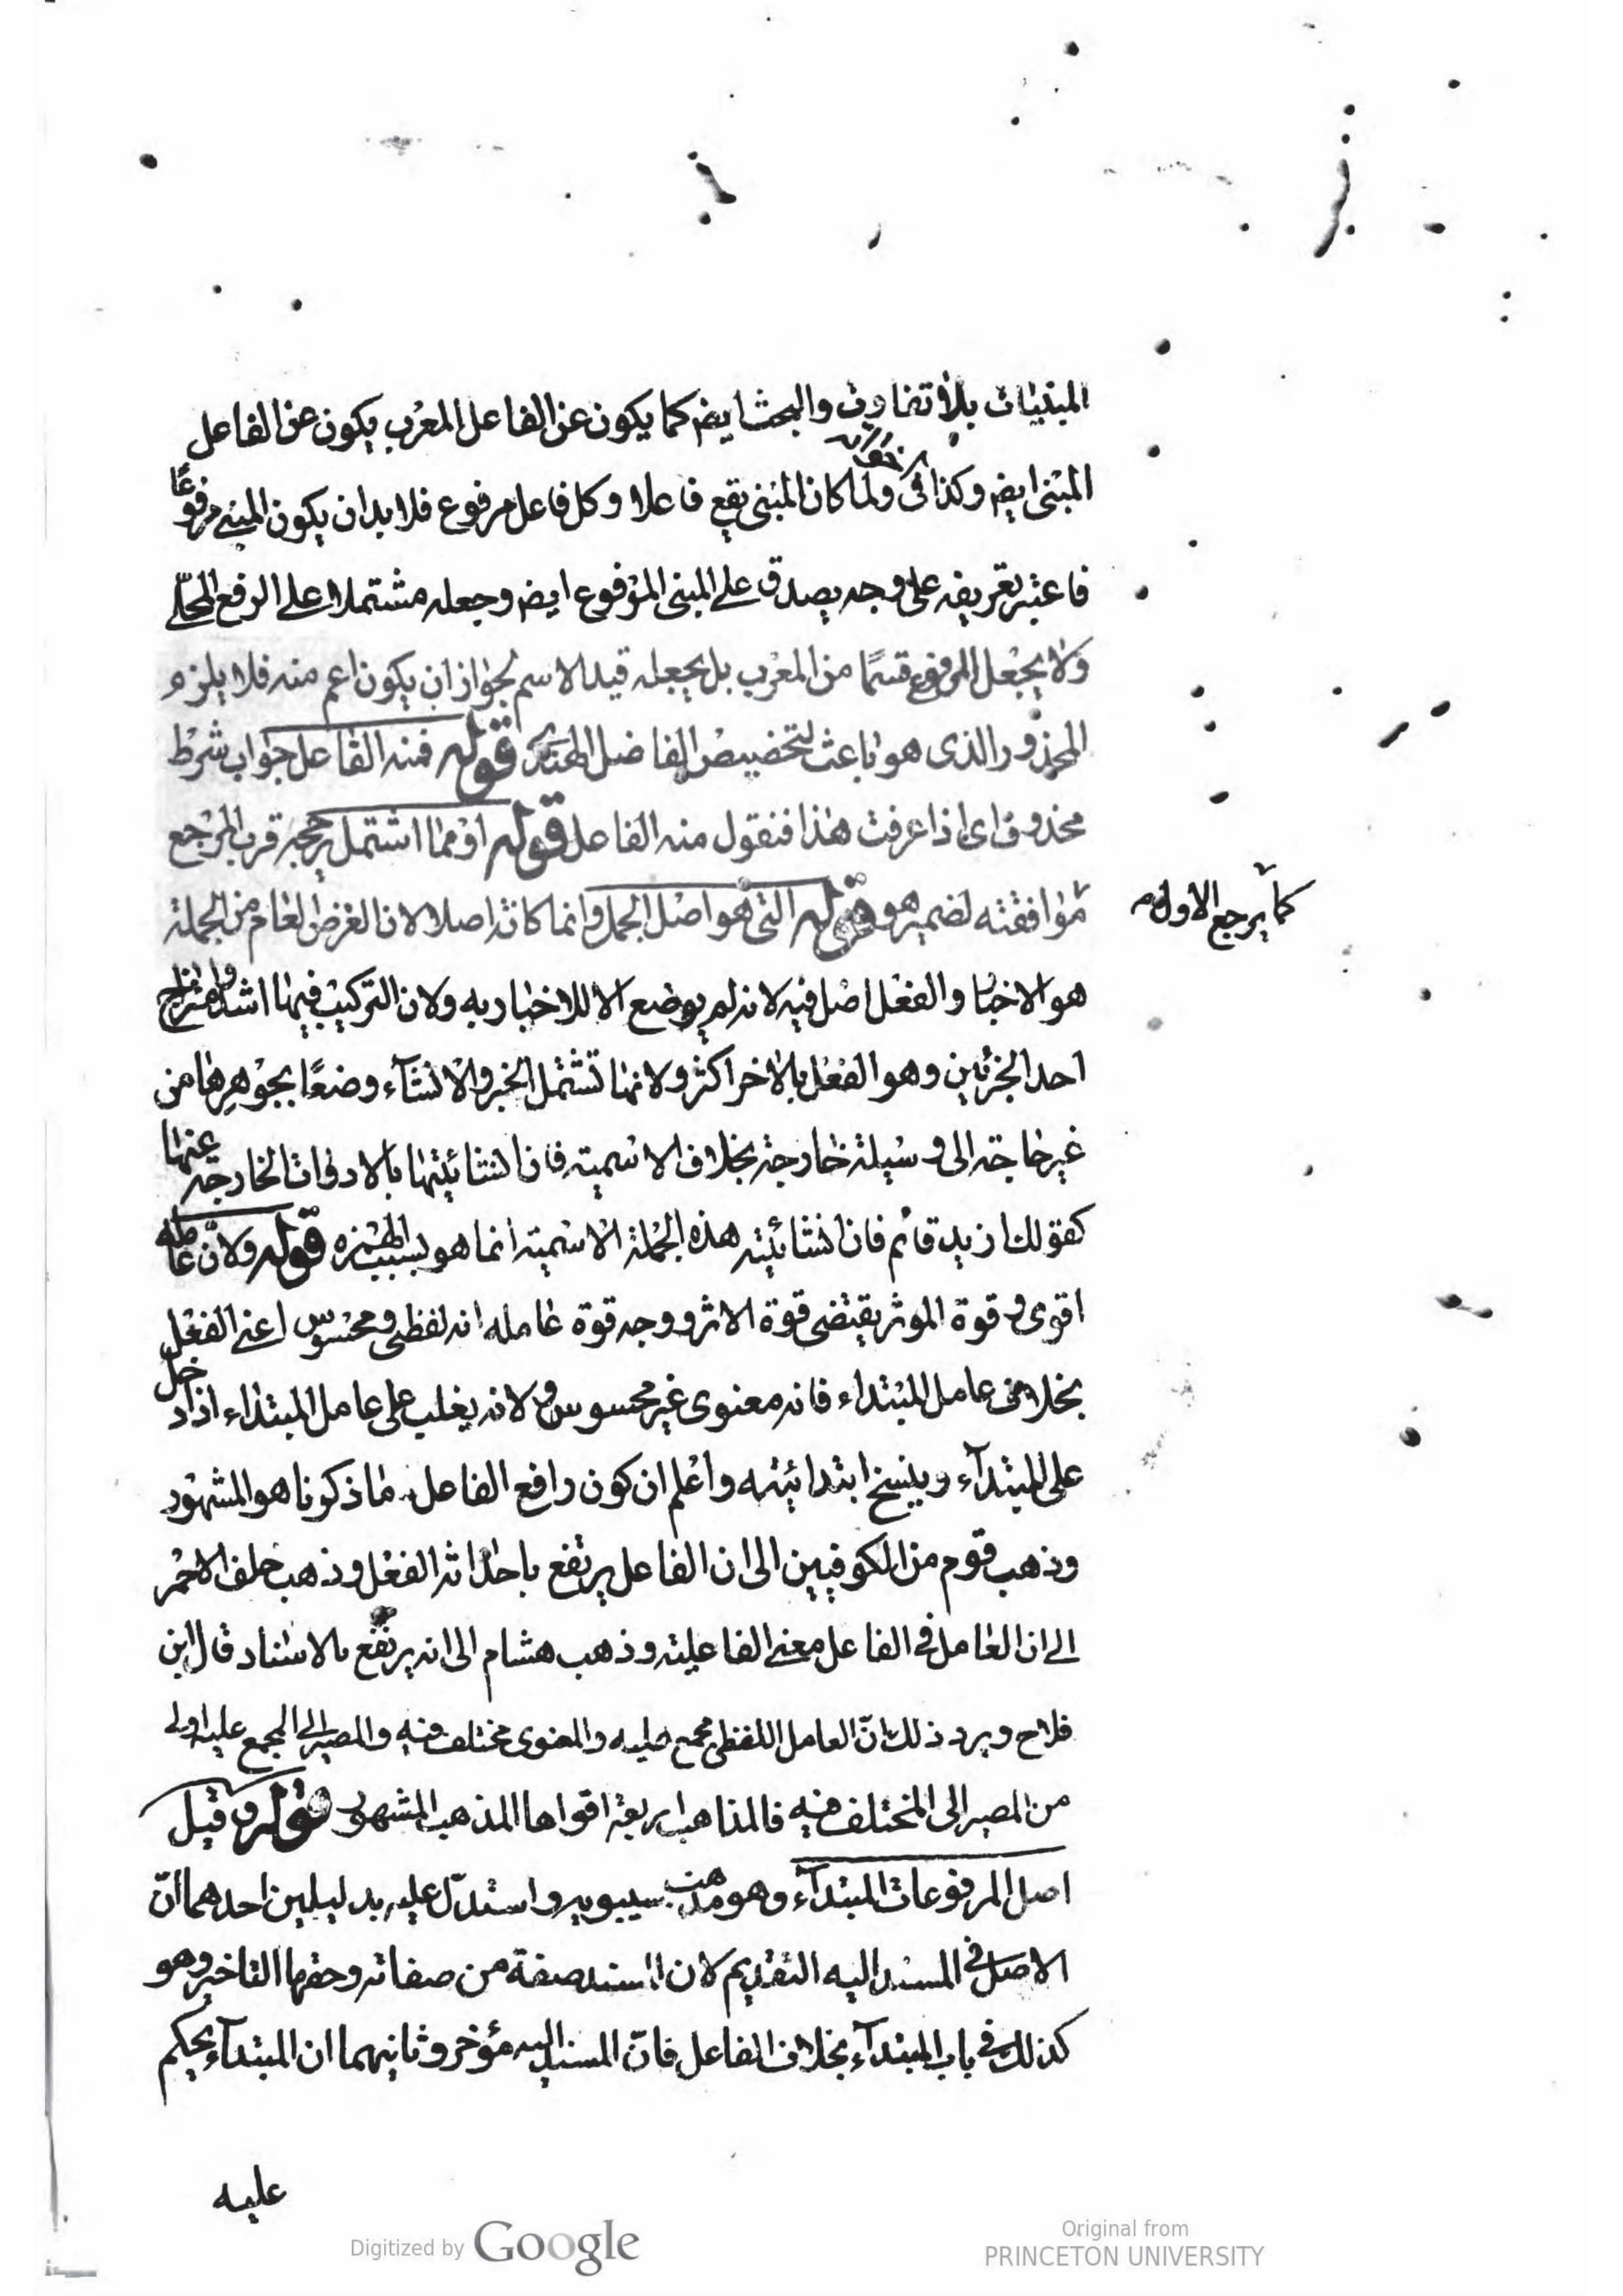 المبنيات بلا تفاوت والبحث ايض كما يكون عن الفاعل المعرب يكون عن الفاعل
المبنى ايض وكذا فى ولما كان المبنى يقع فاعلا وكل فاعل مرفوع فلا بد ان يكون المبنى مرفوعًا
فاعتبر تعريفه على وجه يصدق على المبنى المرفوع ايض وجعله مشتملا على الرفع المحلّى
ولا يجعل المرفوع قسمًا من المعرب بل يجعله قيد الاسم لجواز ان يكون اعم منه فلا يلزم
المحذور الذى هو باعث لتخصيص الفاضل الهندى قوله فمنه الفاعل جواب شرط
محذوف اى اذا عرفت هذا فنقول منه الفاعل قوله او مما اشتمل يرجحه قرب المرجع
موافقته لضمير هو قوله التى هو اصل الجمل وانما كانت اصلا لان الغرض العام من الجملة
كما يرجع الاول م
هو الاخبار والفعل اصل فيه لانه لم يوضع الا للاخبار به ولان التركيب فيها اشد وامتزاج
احد الجزئين وهو الفعل بالاخر اكثر ولانها تشتمل الخبر والانشآء وضعًا بجوهرها من
غير حاجة الى وسيلة خارجة بخلاف الاسمية فان انشائيتها بالادوات الخارجة عنها
كقولك ازيد قائم فان انشائيته هذه الجملة الاسمية انما هو بسبب الهمزة قوله ولانّ عامله
اقوى وقوة الموثر يقتضى قوة الاثر ووجه قوة عامله انه لفظى ومحسوس اعنى الفعل
بخلاف عامل المبتداء فانه معنوى غير محسوس ولانه يغلب على عامل المبتداء اذا دخل
على المبتدآء وينسخ ابتدائيته واعلم ان كون رافع الفاعل ما ذكرنا هو المشهور
وذهب قوم من الكوفيين الى ان الفاعل يرتفع باحداثه الفعل وذهب خلف الاحمر
الى ان العامل فى الفاعل معنى الفاعلية وذهب هشام الى انه يرتفع بالاسناد قال ابن
فلاح ويرد ذلك انّ العامل اللفظى مجمع عليه والمعنوى مختلف فيه والمصير الى المجمع عليه اولى
من المصير الى المختلف فيه فالمذاهب اربعة اقواها المذهب المشهور قوله وقيل
اصل المرفوعات المبتدآء وهو مذهب سيبويه واستدلّ عليه بدليلين احدهما انّ
الاصل فى المسند اليه التقديم لان المسند صفة من صفاته وحقها التاخير وهو
كذلك فى باب المبتدآء بخلاف الفاعل فانّ المسند اليه مؤخر وثانيهما ان المبتدآء يحكم
عليه
Digitized by Google
Original from
PRINCETON UNIVERSITY